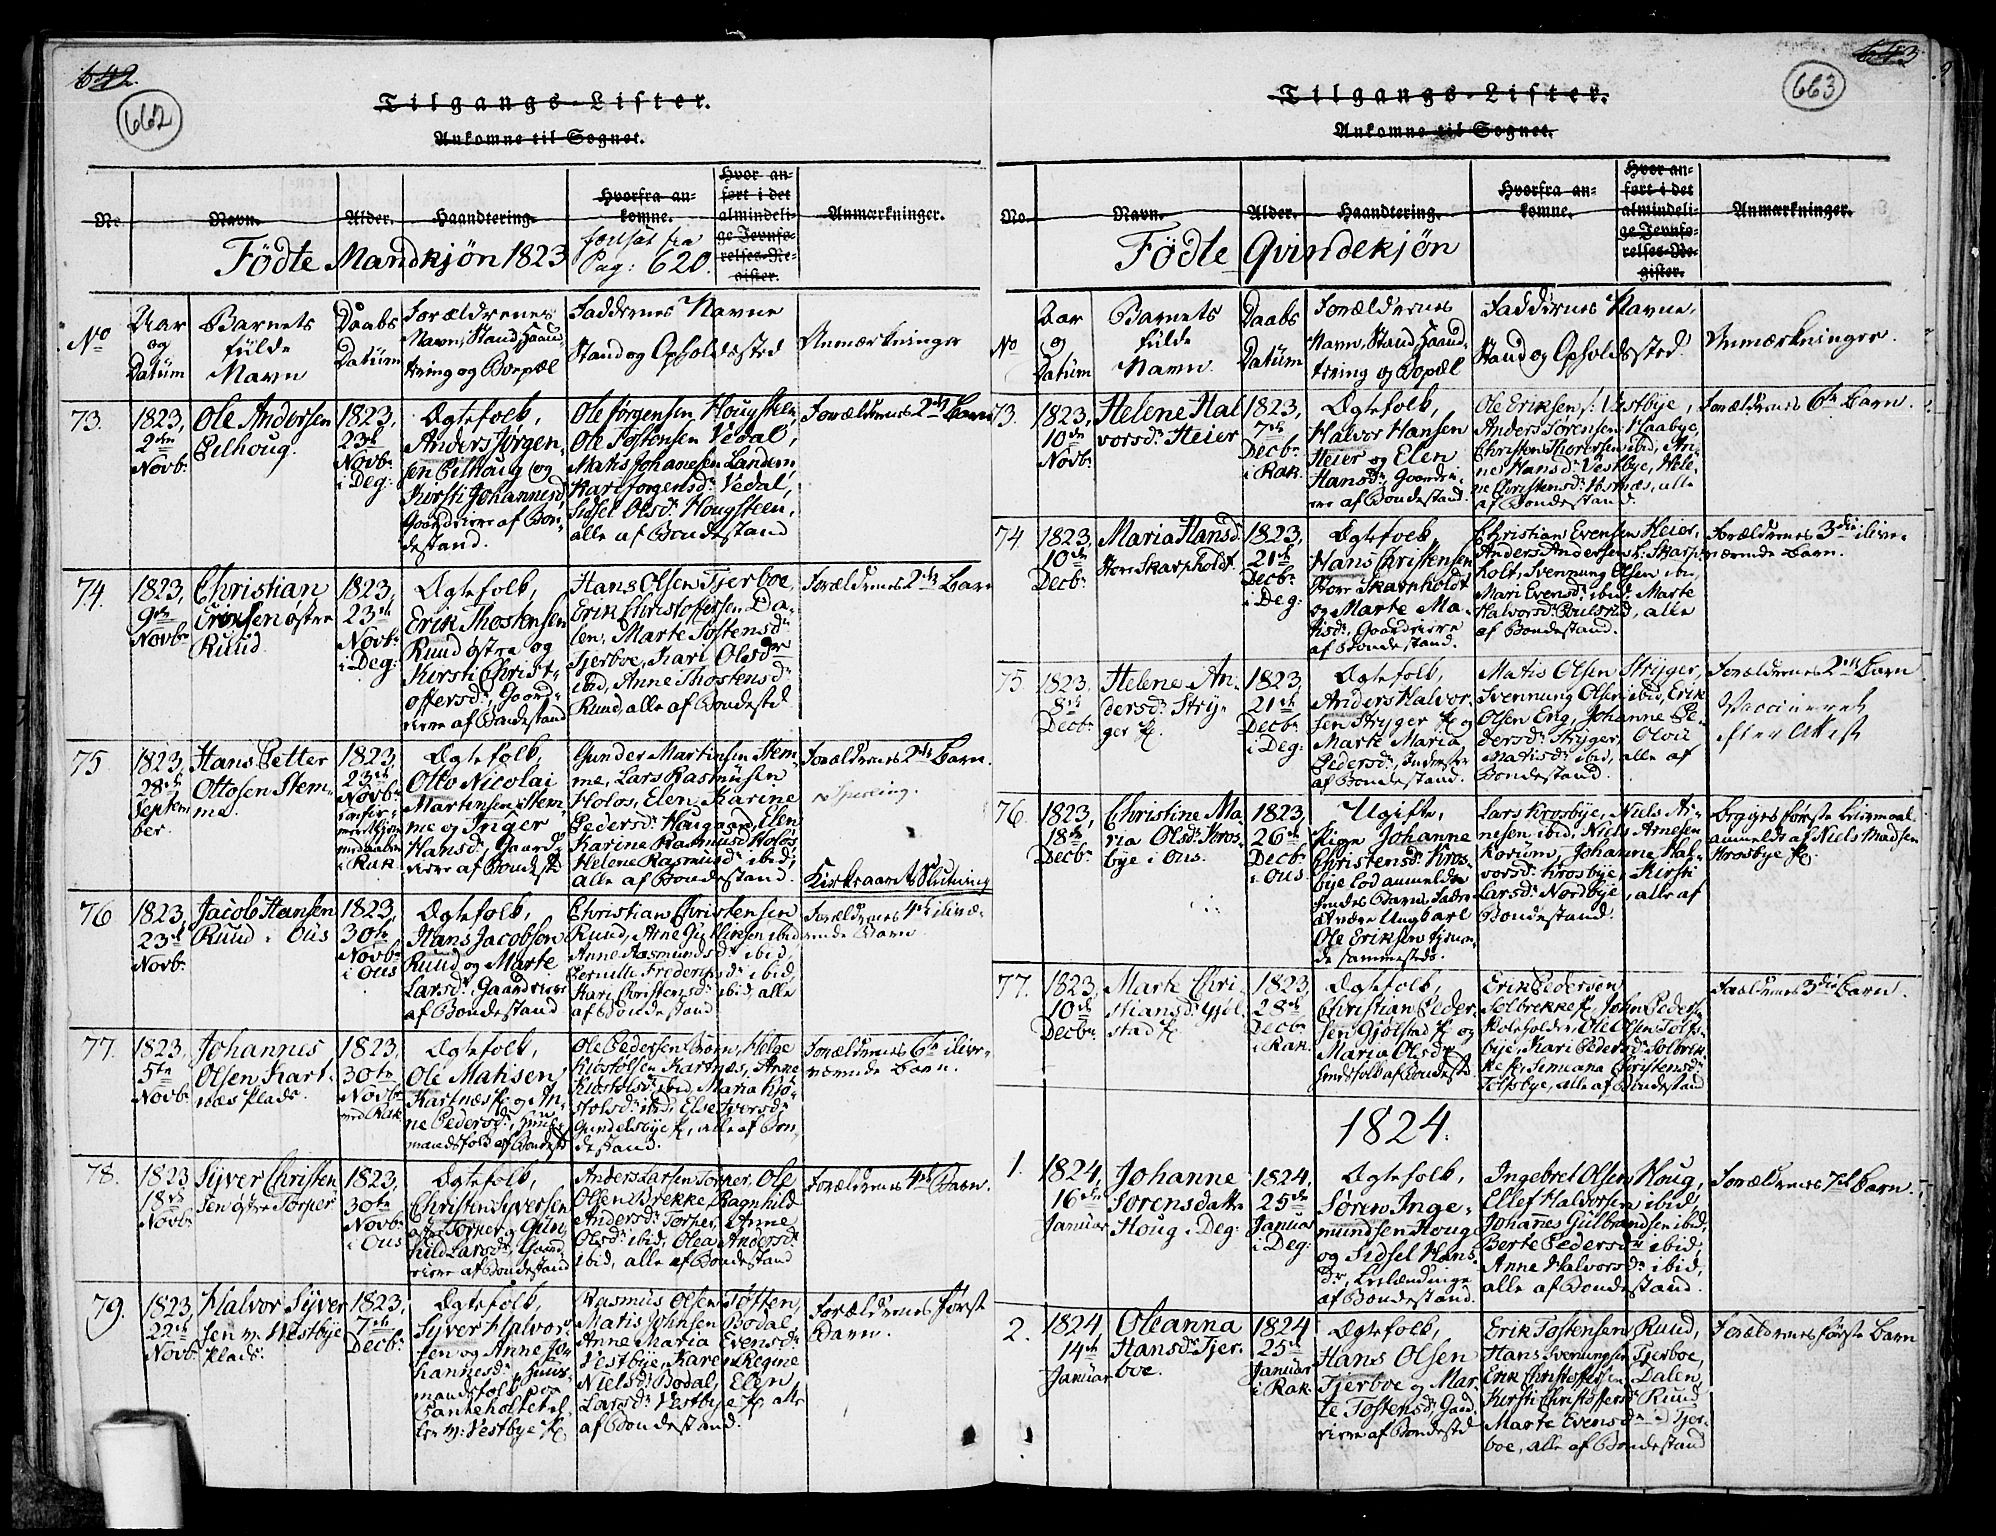 642.
662
Tilgangs-Lister.
Ankomne til Sognet.
No
Navn.
Alder.
Haandtering.
Hvorfra an-
komne.
Hvor an-
ført i det
almindeli-
ge Jevnfø-
relses-Re-
gister.
Anmærkninger.
Födte Mandkjön 1823
fortsat fra
Pag: 620.
No
Aar
og
Datum
Barnets
fulde
Navn
Daabs
Datum
Forældrenes
Navn, Stand, Haand-
tering og Boepæl
Faddernes Navne
Stand og Opholdssted
Anmærkninger
73.
1823,
2den
Novbr
Ole Andersen
Pelhoug.
1823,
23de
Novb:
i Deg:
Ægtefolk,
Anders Jørgen-
sen Pelhoug og
Kirsti Johannesd,
Gaardeiere af Bon-
destand.
Ole Jørgensen Hougsteen,
Ole Tostensen Vedal,
Matis Johanesen Landem,
Kari Jorgensdr Vedal,
Sidsel Olsdr Hougsteen,
alle af Bondestand
Forældrenes 2det Barn
74.
1823,
9de
Novbr
Christian
Eriksen østre
Ruud
1823,
23de
Novb:
i Deg:
Ægtefolk,
Erik Thostensen
Ruud østre og
Kirsti Christ-
offersdr, Gaard-
eiere af Bondestand
Hans Olsen Tjerboe,
Erik Christoffersen Da-
len, Marte Tostensdr
Tjerboe, Kari Olesdr
ibid, Anne Thostensdr
Ruud, alle af Bondestd
Forældrenes 2det Barn
75
1823,
28de
Septem-
ber.
Hans Petter
Ottosen Stem-
me.
1823,
23de
Novbr
i Rak
Ægtefolk,
Otto Nicolai
Martinsen Stem-
me og Inger
Hansdr, Gaard-
eiere af Bondestd
Gunder Martinsen Stem-
me, Lars Rasmusen
Holøs, Elen Karine
Pedersdr Haugaad, Elen
Karine Rasmusd Holøs
Helene Rasmusdr ibid,
alle af Bondestand.
Forældrenes 2det Barn.
Kirkeaarets Slutning
76
1823,
23de
Novb:
Jacob Hansen
Ruud i Ous
1823,
30te
Novb:
i Ous
Ægtefolk,
Hans Jacobsen
Ruud og Marte
Larsdr, Gaardeiere
af Bondestand
Christian Christensen
Ruud, Arne Gulliksen ibid
Anne Rasmusdr ibid,
Pernille Fredericsdr ibid,
Kari Christensdr ibid, alle
af Bondestand
Forældrenes 4de ilivæ-
rende Barn.
77.
1823,
5te
Novbr
Johannes
Olsen Kart-
næs plads.
1823,
30te
Novbr
Ægtefolk,
Ole Matisen
Kartnæs Pl og An-
ne Pedersdr, Huus-
mandsfolk af Bondestd
Ole Pedersen Børn, Helge
Kiostolsen Kartnæs, Anne
Kiostolsdr ibid, Maria Kiø-
stolsdr ibid, Else Iversdr
Gundelsbye Pl, alle af Bon-
destand.
Forældrenes 6te ilive-
værende Barn.
78.
1823
18de
Novbr
Syver Christen-
sen østre Torper
1823,
30te
Novbr
i Ous
Ægtefolk,
Christen Syversen
østre Torper og Gun-
hild Larsdr, Gaard-
eiere af Bondestand
Anders Larsen Torper, Ole
Olsen Brekke Ragnhild
Andersdr Torper, Anne
Olsdr ibid, Olea Andersdr
ibid, alle af Bondestand
Forældrenes 4de Barn.
79.
1823,
22de
Novb:
Halvor Syver-
sen n. Vestbye
plads.
1823,
7de
Decbr
Ægtefolk,
Syver Halvor-
sen og Anne Jo-
hannesdr, Huus-
mandsfolk paa
n: Vestbye Pl
Rasmus Olsen Tøften,
Matis Johnsen Bodal,
Anne Maria Evensdr
Vestbye, Karen Regine
Nielsdr Bodal, Elen
Larsdr Vestbye Pl alle
af Bondestand.
Forældrenes første
Barn.
643
663
Tilgangs-Lister.
Ankomne til Sognet.
No
Navn.
Alder.
Haandtering.
Hvorfra an-
komne.
Hvor an-
ført i det
almindeli-
ge Jevnfø-
relses-Re-
gister.
Anmærkninger.
Födte Qvindekjön
No
Aar
og
Datum
Barnets
fulde
Navn.
Daabs
Datum
Forældrenes
Navn, Stand, Haand-
tering og Bopæl
Faddernes Navne,
Stand og Opholdssted.
Anmærkninger.
73.
1823,
10de
Novb:
Helene Hal-
vorsdr Heier
1823,
7de
Decbr
i Rak.
Ægtefolk,
Halvor Hansen
Heier og Elen
Hansdr, Gaardei-
ere af Bondestand.
Ole Eriksen s: Vestbye,
Anders Sorensen Haabye,
Christen Thoresen ibid, An-
ne Hansdr Vestbye, Hele-
ne Christensdr Vestnæs, alle
af Bondestand.
Forældrenes 6te Barn.
74.
1823,
10de
Decbr
Maria Hansdr
Store Skarpholdt.
1823,
21de
Decbr
i Deg:
Ægtefolk,
Hans Christensen
Store Skarpholdt
og Marte Ma-
tisdr, Gaardeiere
af Bondestand.
Christian Evensen Heier,
Anders Andersen l: Skarp-
holt, Svennung Olsen ibid,
Mari Evensdr ibid, Marte
Halvorsdr Poulsrud, alle
af Bondestand.
Forældrenes 3die ilive-
værende Barn.
75.
1823,
8de
Decbr
Helene An-
dersdr Stry-
ger Pl.
1823
21de
Decbr
i Deg:
Ægtefolk,
Anders Halvor-
sen Stryger Pl og
Marte Maria
Pedersdr, Inderster
af Bondestand.
Matis Olsen Stryger,
Svennung Olsen ibid, Erik
Olsen Eng, Johanne Pe-
dersdr Stryger, Olvie
Matisdr ibid, alle af
Bondestand.
Forældrenes 2det Barn
Vaccineret
efter Attest
76.
1823,
18de
Decbr
Christine Ma-
ria Olsdr Kros-
bye i Ous.
1823,
26de
Decbr
i Ous
Ugifte,
Pige Johanne
Christensdr Kros-
bye lod anmelde
hendes Barns Fader
at være Ungkarl
Ole Eriksen tjenen-
de sammesteds.
Lars Krosbye, Niels Ar-
nesen ibid, Niels Arnesen
Korum, Johanne Hal-
vorsdr Krosbye, Kirsti
Larsdr Nordbye, alle af
Bondestand.
Begges første Leiermaal
anmeldt af Niels Madsen
Krosbye Pl.
77.
1823,
10de
Decbr
Marte Chri-
stiansdr Gjøl-
stad Pl
1823
28de
Decbr
i Rak.
Ægtefolk,
Christian Peder-
sen Gjølstad Pl og
Maria Olsdr
Huusfolk af Bondestd
Erik Pedersen
Solbrekke Pl, John Peders
Skoleholder, Ole Olsen Tolfs-
bye, Kari Pedersdr Solbrek-
ke Pl, Simiana Christensdr
Tolfsbye, alle af Bondestand
Forældrenes 3die Barn.
1824.
1.
1824,
16de
Januar
Johanne
Sorensdatter
Houg i Deg:
1824,
25de
Januar
i Deg:
Ægtefolk,
Søren Inge-
mundsen Houg
og Sidsel Hans-
Dr, Leilændinge
af Bondestand.
Ingebret Olsen Houg,
Ellef Halvorsen ibid,
Johanes Gulbrandsen ibid,
Berte Pedersdr ibid,
Anne Halvorsdr ibid,
alle af Bondestand.
Forældrenes 7de Barn.
2.
1824
14de
Januar
Oleanna
Hansdr Tjer-
boe.
1824
25de
Januar
i Rak.
Ægtefolk,
Hans Olsen
Tjerboe og Mar-
te Tostensdr, Gaard-
eiere af Bondestd
Erik Tostensen Ruud,
Hans Svenungsen Tjerboe,
Erik Christoffersen Dalen,
Kirsti Christoffersdr Ruud
Marte Evensdr i Tjer-
boe, alle af Bondestand
Forældrenes første Barn